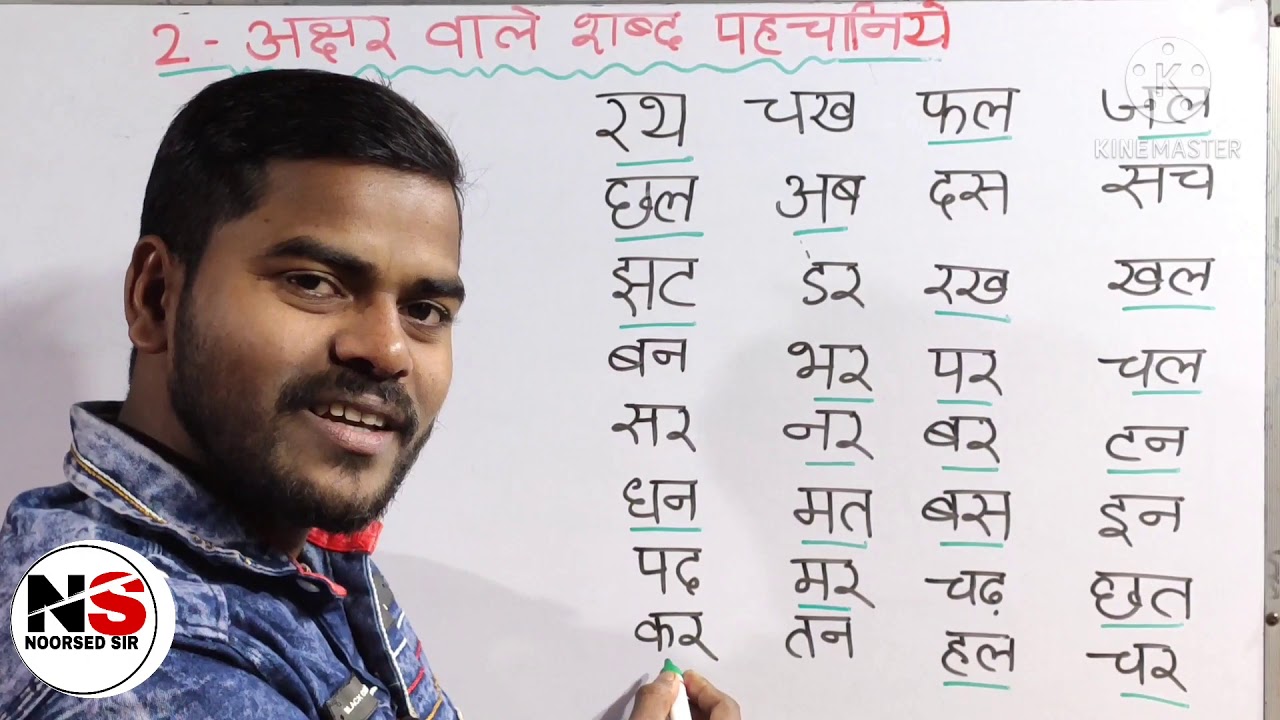 2- अक्षर वाले शब्द पहचानिये
रथ चख फल जल
छल अब दस सच
झट डर रख खल
बन भर पर चल
सर नर बर टन
धन मत बस इन
पद मर चढ़ छत
कर तन हल चर
K
KINEMASTER
NS
NOORSED SIR